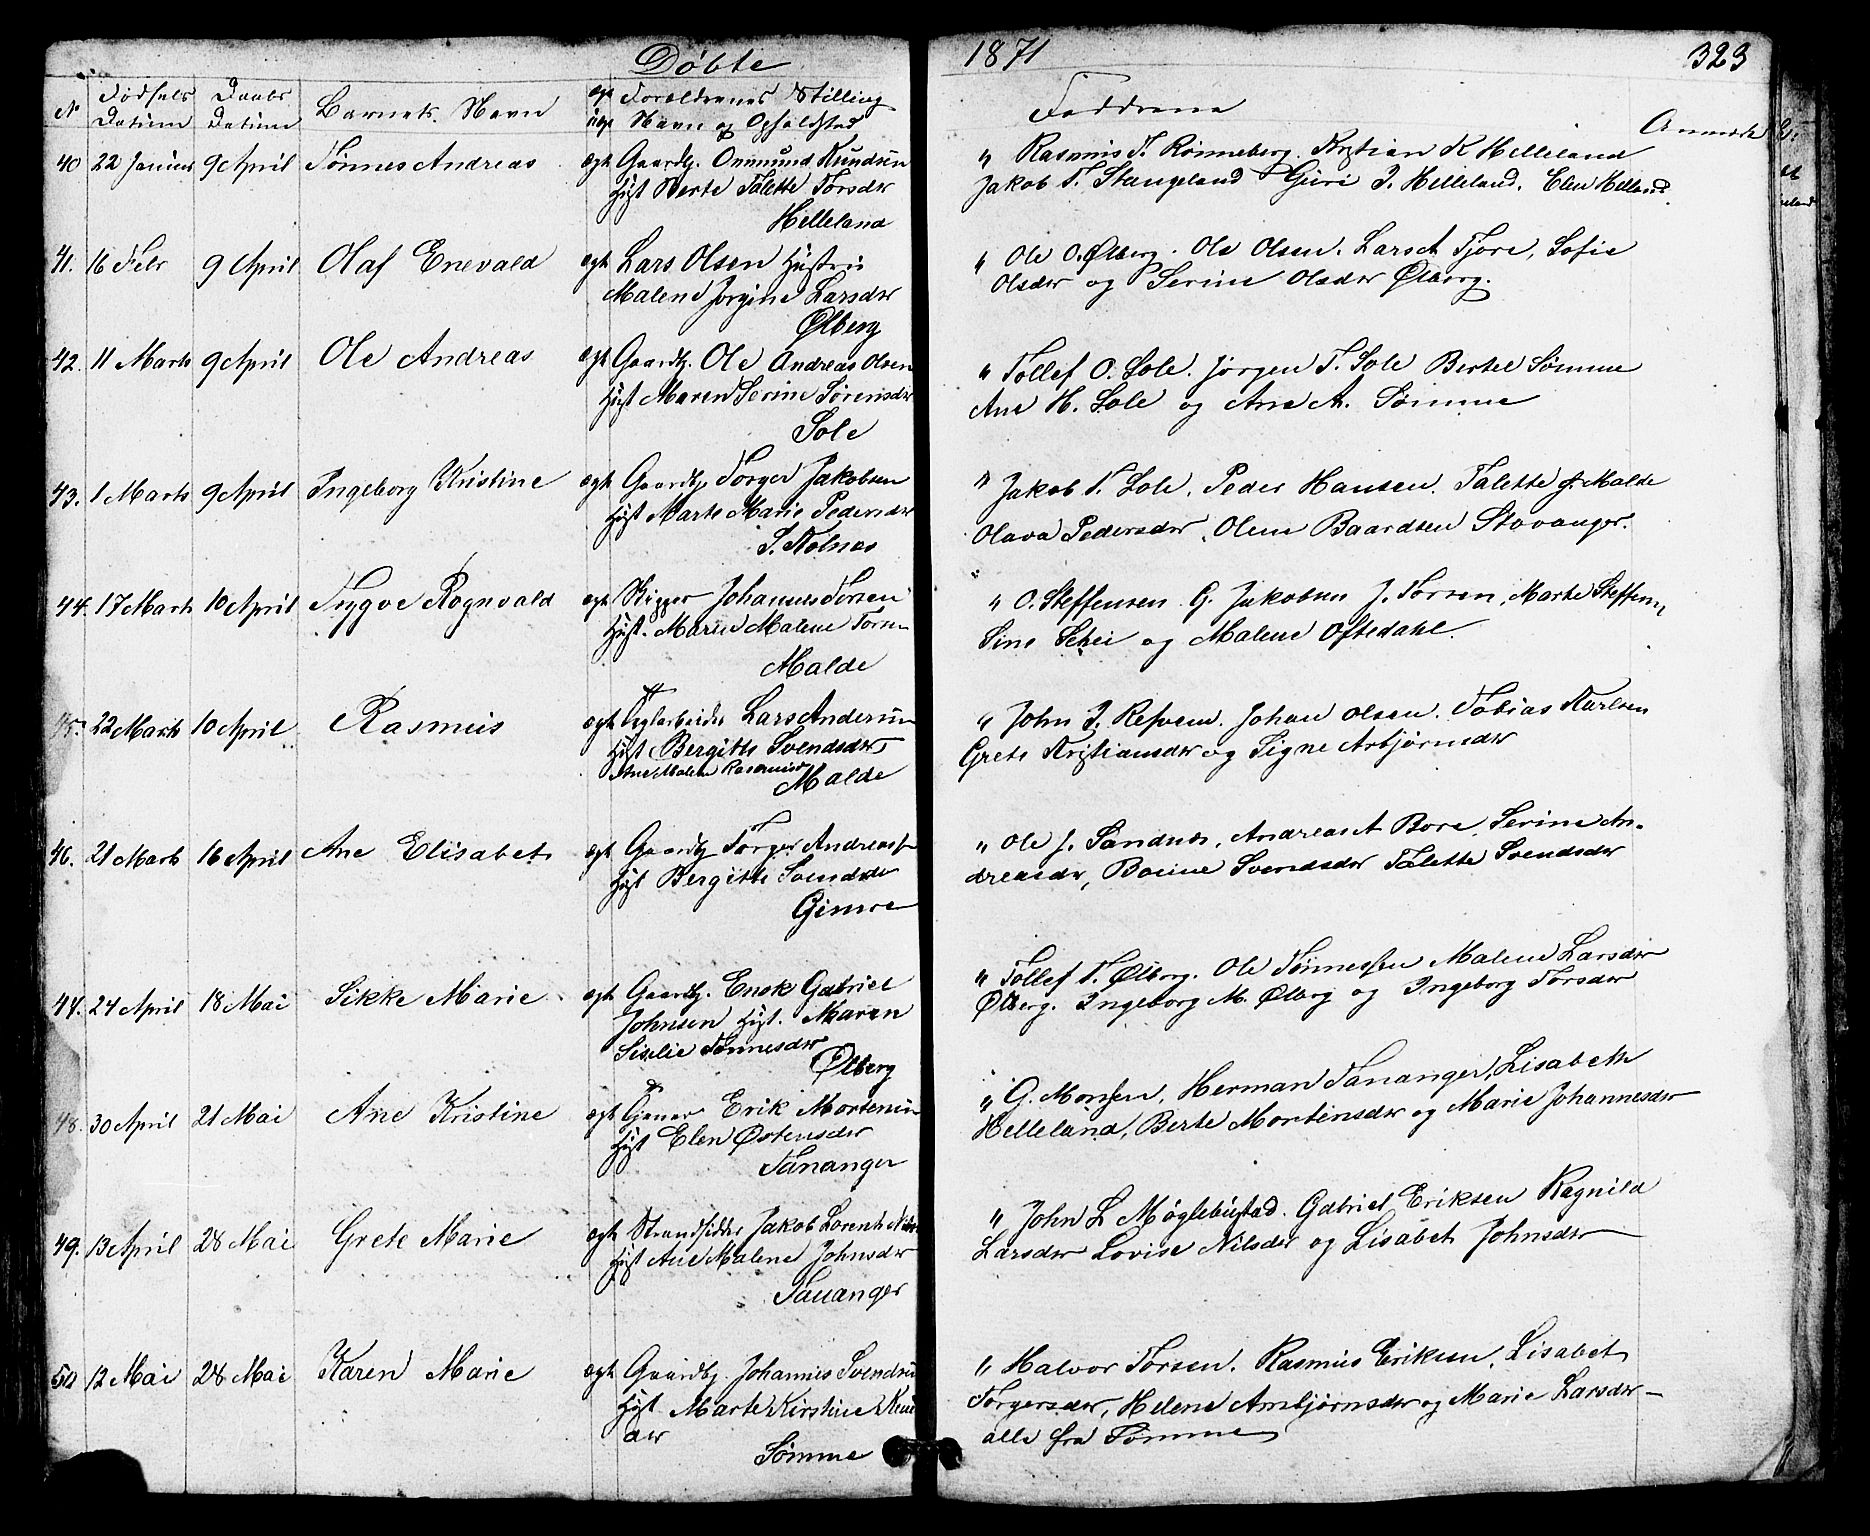 Døbte
1871
323
N
Fødsels Datum
Daabs Datum
Barnets Navn
Forældrenes Stilling
Navn og Opholdsted
Faddrene
Anmærk
40 22 Januar 9 April Tønnes Andreas ægt Gaardbr. Ommund Knudsen
Hust Berte Talette Torsdtr
Helleland
" Rasmus T. Rønneberg. Kristian K Helleland
Jakob T. Stangeland Guri J. Helleland. Elen Helland
41. 16 Febr 9 April Olaf Enevald ægt Lars Olsen Hustru
Malene Jorgine Larsdtr
Ølberg
" Ole O. Ølberg. Ole Olsen. Lars A Tjore, Sofie
Olsdtr og Serine Olsdtr Ølberg.
42. 11 Marts 9 April Ole Andreas ægt Gaardbr. Ole Andreas Olsen
Hust Maren Serine Sørensdtr
Sole
" Tollef O. Sole. Jørgen T. Sole Bertel Sømme
Ane H. Sole og Ane A. Sømme
43. 1 Marts 9 April Ingeborg Kristine ægt Gaardbr Torger Jakobsen
Hust Marte Marie Pedersdtr
S. Kolnes
" Jakob T. Sole. Peder Hansen. Talette J. Malde
Olava Pedersdtr, Olene Baardsen Stavanger.
44. 17 Marts 10 April Trygve Rognvald ægt Skipper Johannes Torsen
Hust. Maren Malene Torsen
Malde
" O. Steffensen G. Jakobsen J. Torsen, Marte Steffens,
Sine Schei og Malene Oftedahl.
45. 22 Marts 10 April Rasmus ægt Teglarbeider Lars Andersen
Hust Bergitte Svendsdtr
Ane Malene Rasmusd
Malde
" John J. Refvem. Johan Olsen. Tobias Karlsen
Grete Kristiansdtr og Signe Asbjørnsdtr
46. 21 Marts 16 April Ane Elisabet ægt Gaardbr Torger Andreass
Hust Bergitte Svendsdtr
Gimre
" Ole J. Sandnes, Andreas A Bore, Serine An-
dreasdtr, Boline Svendsdtr Talette Svendsdtr
47. 24 April 18 Mai Sikke Marie ægt Gaardbr. Enok Gabriel
Johnsen Hust. Maren
Siselie Tønnesdtr
Ølberg
" Tollef T. Ølberg. Ole Tønnessen Malene Larsdtr
Ølberg. Ingeborg M. Ølberg og Ingeborg Torsdtr
48. 30 April 21 Mai Ane Kristine ægt Tjener Erik Mortensen
Hust Elen Østensdtr
Tananger
" G. Monsen, Herman Tananger, Lisabeth
Helleland, Berte Mortensdtr og Marie Johannesdtr
49. 13 April 28 Mai Grete Marie ægt Strandsidder Jakob Lorents
Hust Ane Malene Johnsdtr
Tananger
" John L Møglebustad. Gabriel Eriksen Ragnild
Larsdtr Lovise Nilsdtr og Lisabet Johnsdtr
50 12 Mai 28 Mai Karen Marie ægt Gaardbr. Johannes Svendsen
Hust Marte Kirstine
dtr
Sømme
" Halvor Torsen. Rasmus Eriksen, Lisabet
Torgersdtr, Helene Arnbjørnsdtr og Marie Larsdtr
alle fra Sømme